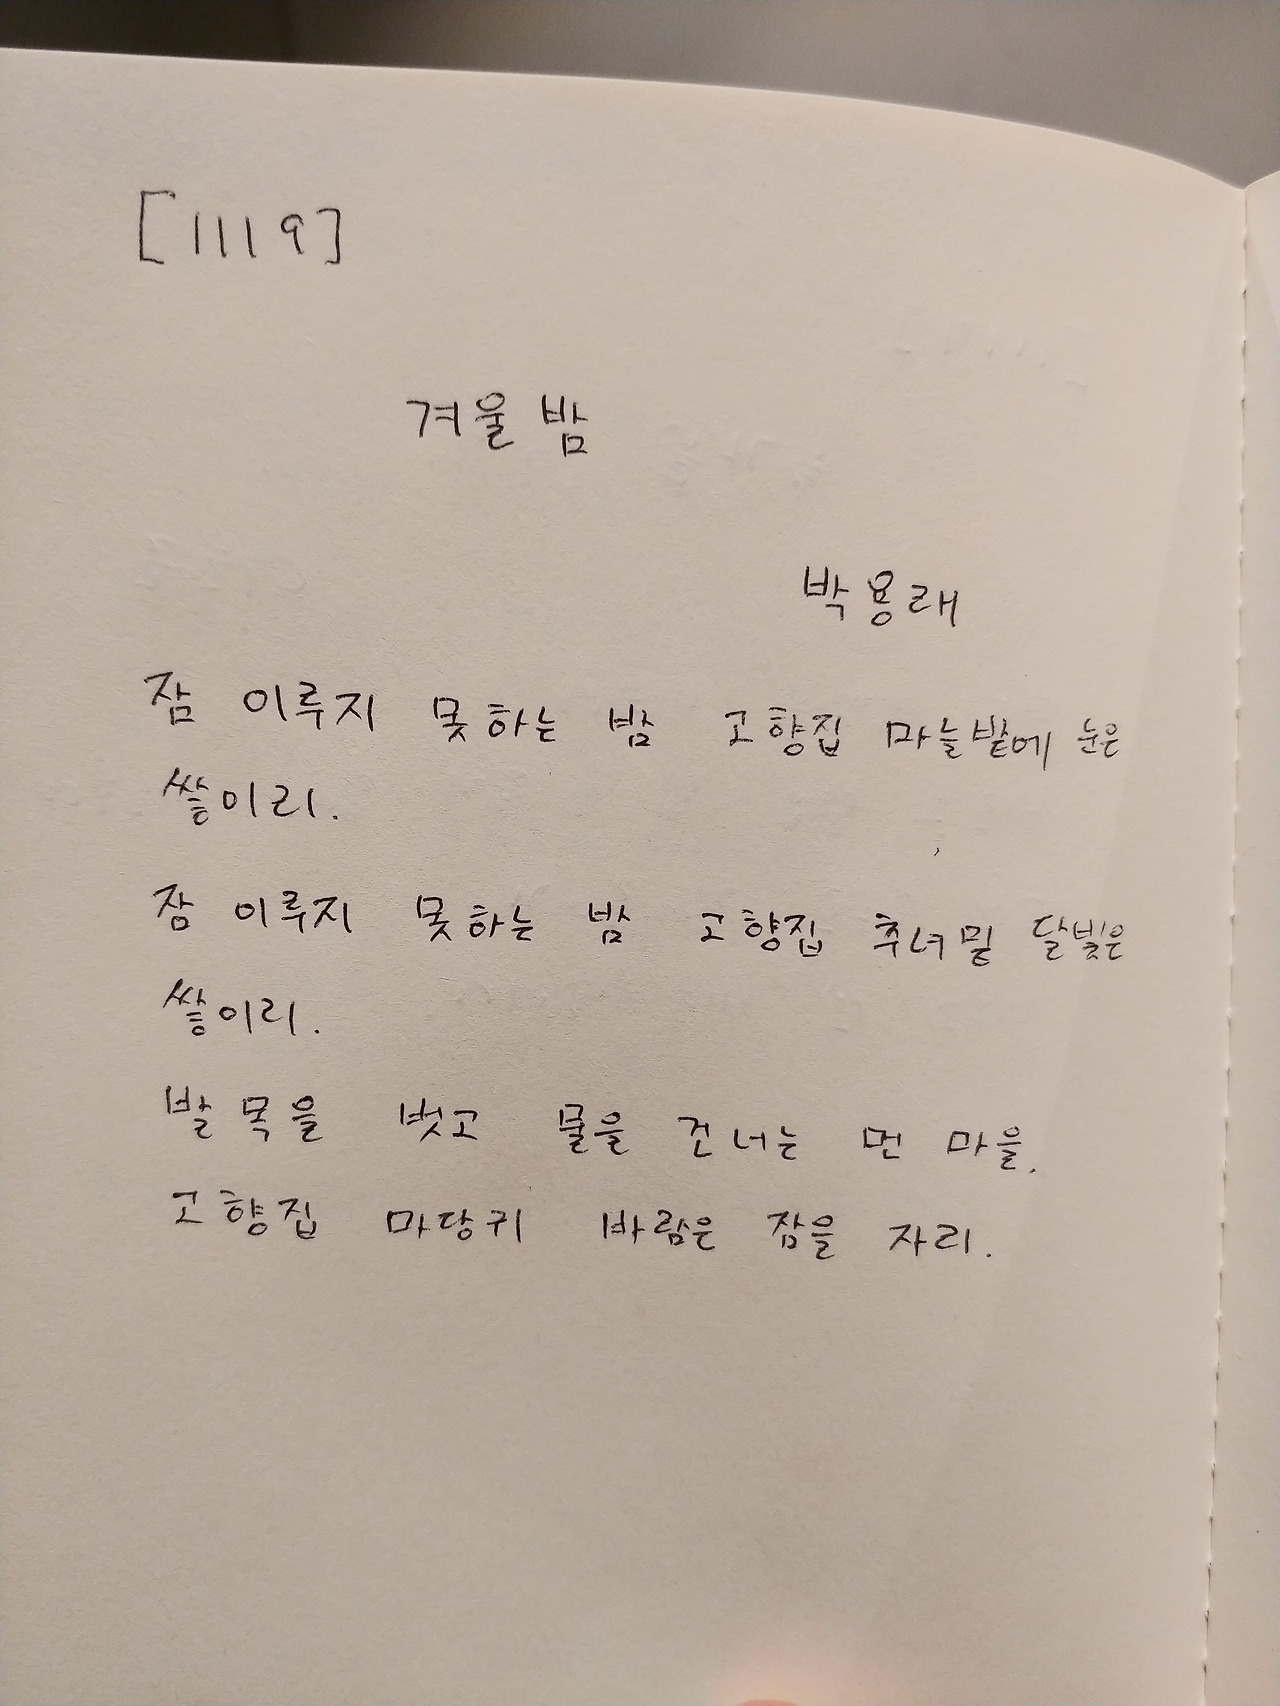 [1119]
겨울밤
박용래
잠 이루지 못하는 밤 고향집 마늘밭에 눈은
쌓이리.
잠 이루지 못하는 밤 고향집 추녀밑 달빛은
쌓이리.
발목을 벗고 물을 건너는 먼 마을.
고향집 마당귀 바람은 잠을 자리.